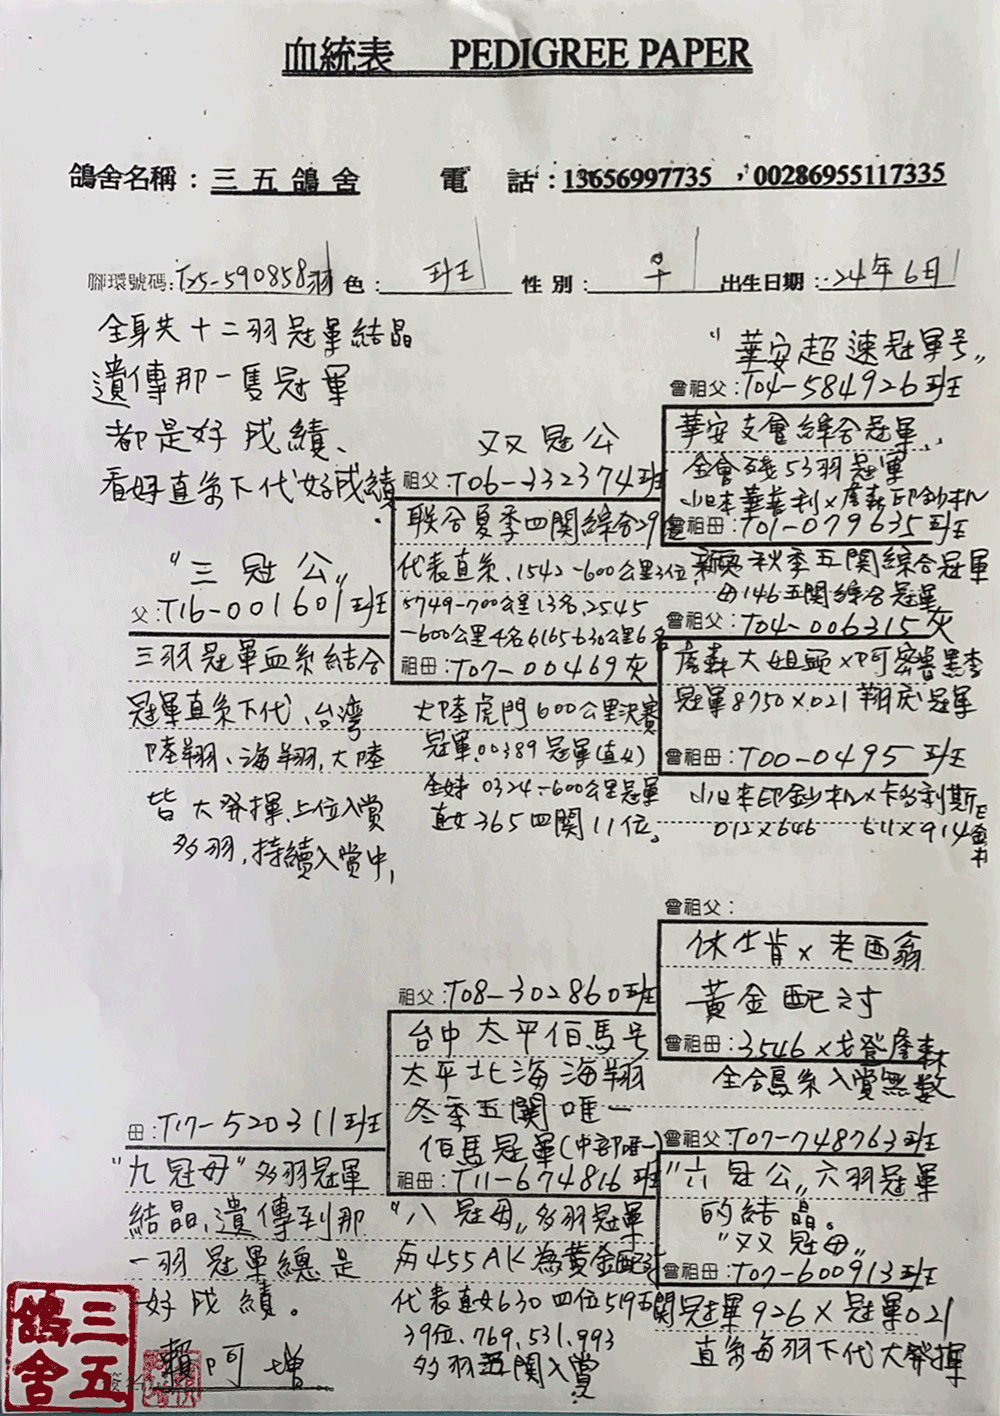 血統表 PEDIGREE PAPER
鴿舍名稱：三五鴿舍 電話：13656997735，00286955117335
腳環號碼：T25-590858 羽色：斑 性別：♀ 出生日期：24年6月
全身共十二羽冠軍結晶
遺傳那一隻冠軍
都是好成績、
看好直系下代好成績.
"三冠公"
父：T16-001601斑
三羽冠軍血系結合
冠軍直系下代、台灣
陸翔、海翔、大陸
皆大發揮、上位入賞
多羽，持續入賞中，
双双冠公
祖父：T06-332374斑
联合夏季四関綜合29
代表直系、1542-600公里3位
5749-700公里13名、2545
-600公里4名、6165-630公里6名
祖母：T07-00469灰
大陸虎門600公里決賽
冠軍、00389冠軍(直女)
全妹0324-600公里冠軍
直女365四関11位。
"華安超速冠軍号"
曾祖父：T04-584926斑
華安支會綜合冠軍、
全會殘53羽冠軍
小日本華普利x詹森印鈔机
曾祖母：T01-079635斑
秋季五関綜合冠軍
母146五関綜合冠軍
曾祖父：T04-006315灰
詹森大姐頭x阿密魯黑李
冠軍8750x021翔虎冠軍
曾祖母：T00-0495斑
小日本印鈔机x卡多利斯
012x646 611x914
母：T17-520311斑
"九冠母"多羽冠軍
結晶、遺傳到那
一羽冠軍總是
好成績。
賴阿增
三五鴿舍
祖父：T08-302860斑
台中太平佰馬号
太平北海海翔
冬季五関唯一
佰馬冠軍(中部唯一)
祖母：T11-674816斑
"八冠母"多羽冠軍
与455AK為黃金配対
代表直女630四位519五関
39位、769、531、993
多羽五関入賞
曾祖父：
休生肯x老西翁
黃金配対
曾祖母：3546x戈登詹森
全合鳥系入賞無数
曾祖父：T07-748763斑
"六冠公"六羽冠軍
的結晶。
"双双冠母"
曾祖母：T07-600913斑
冠軍926x冠軍021
直系每羽下代大發揮